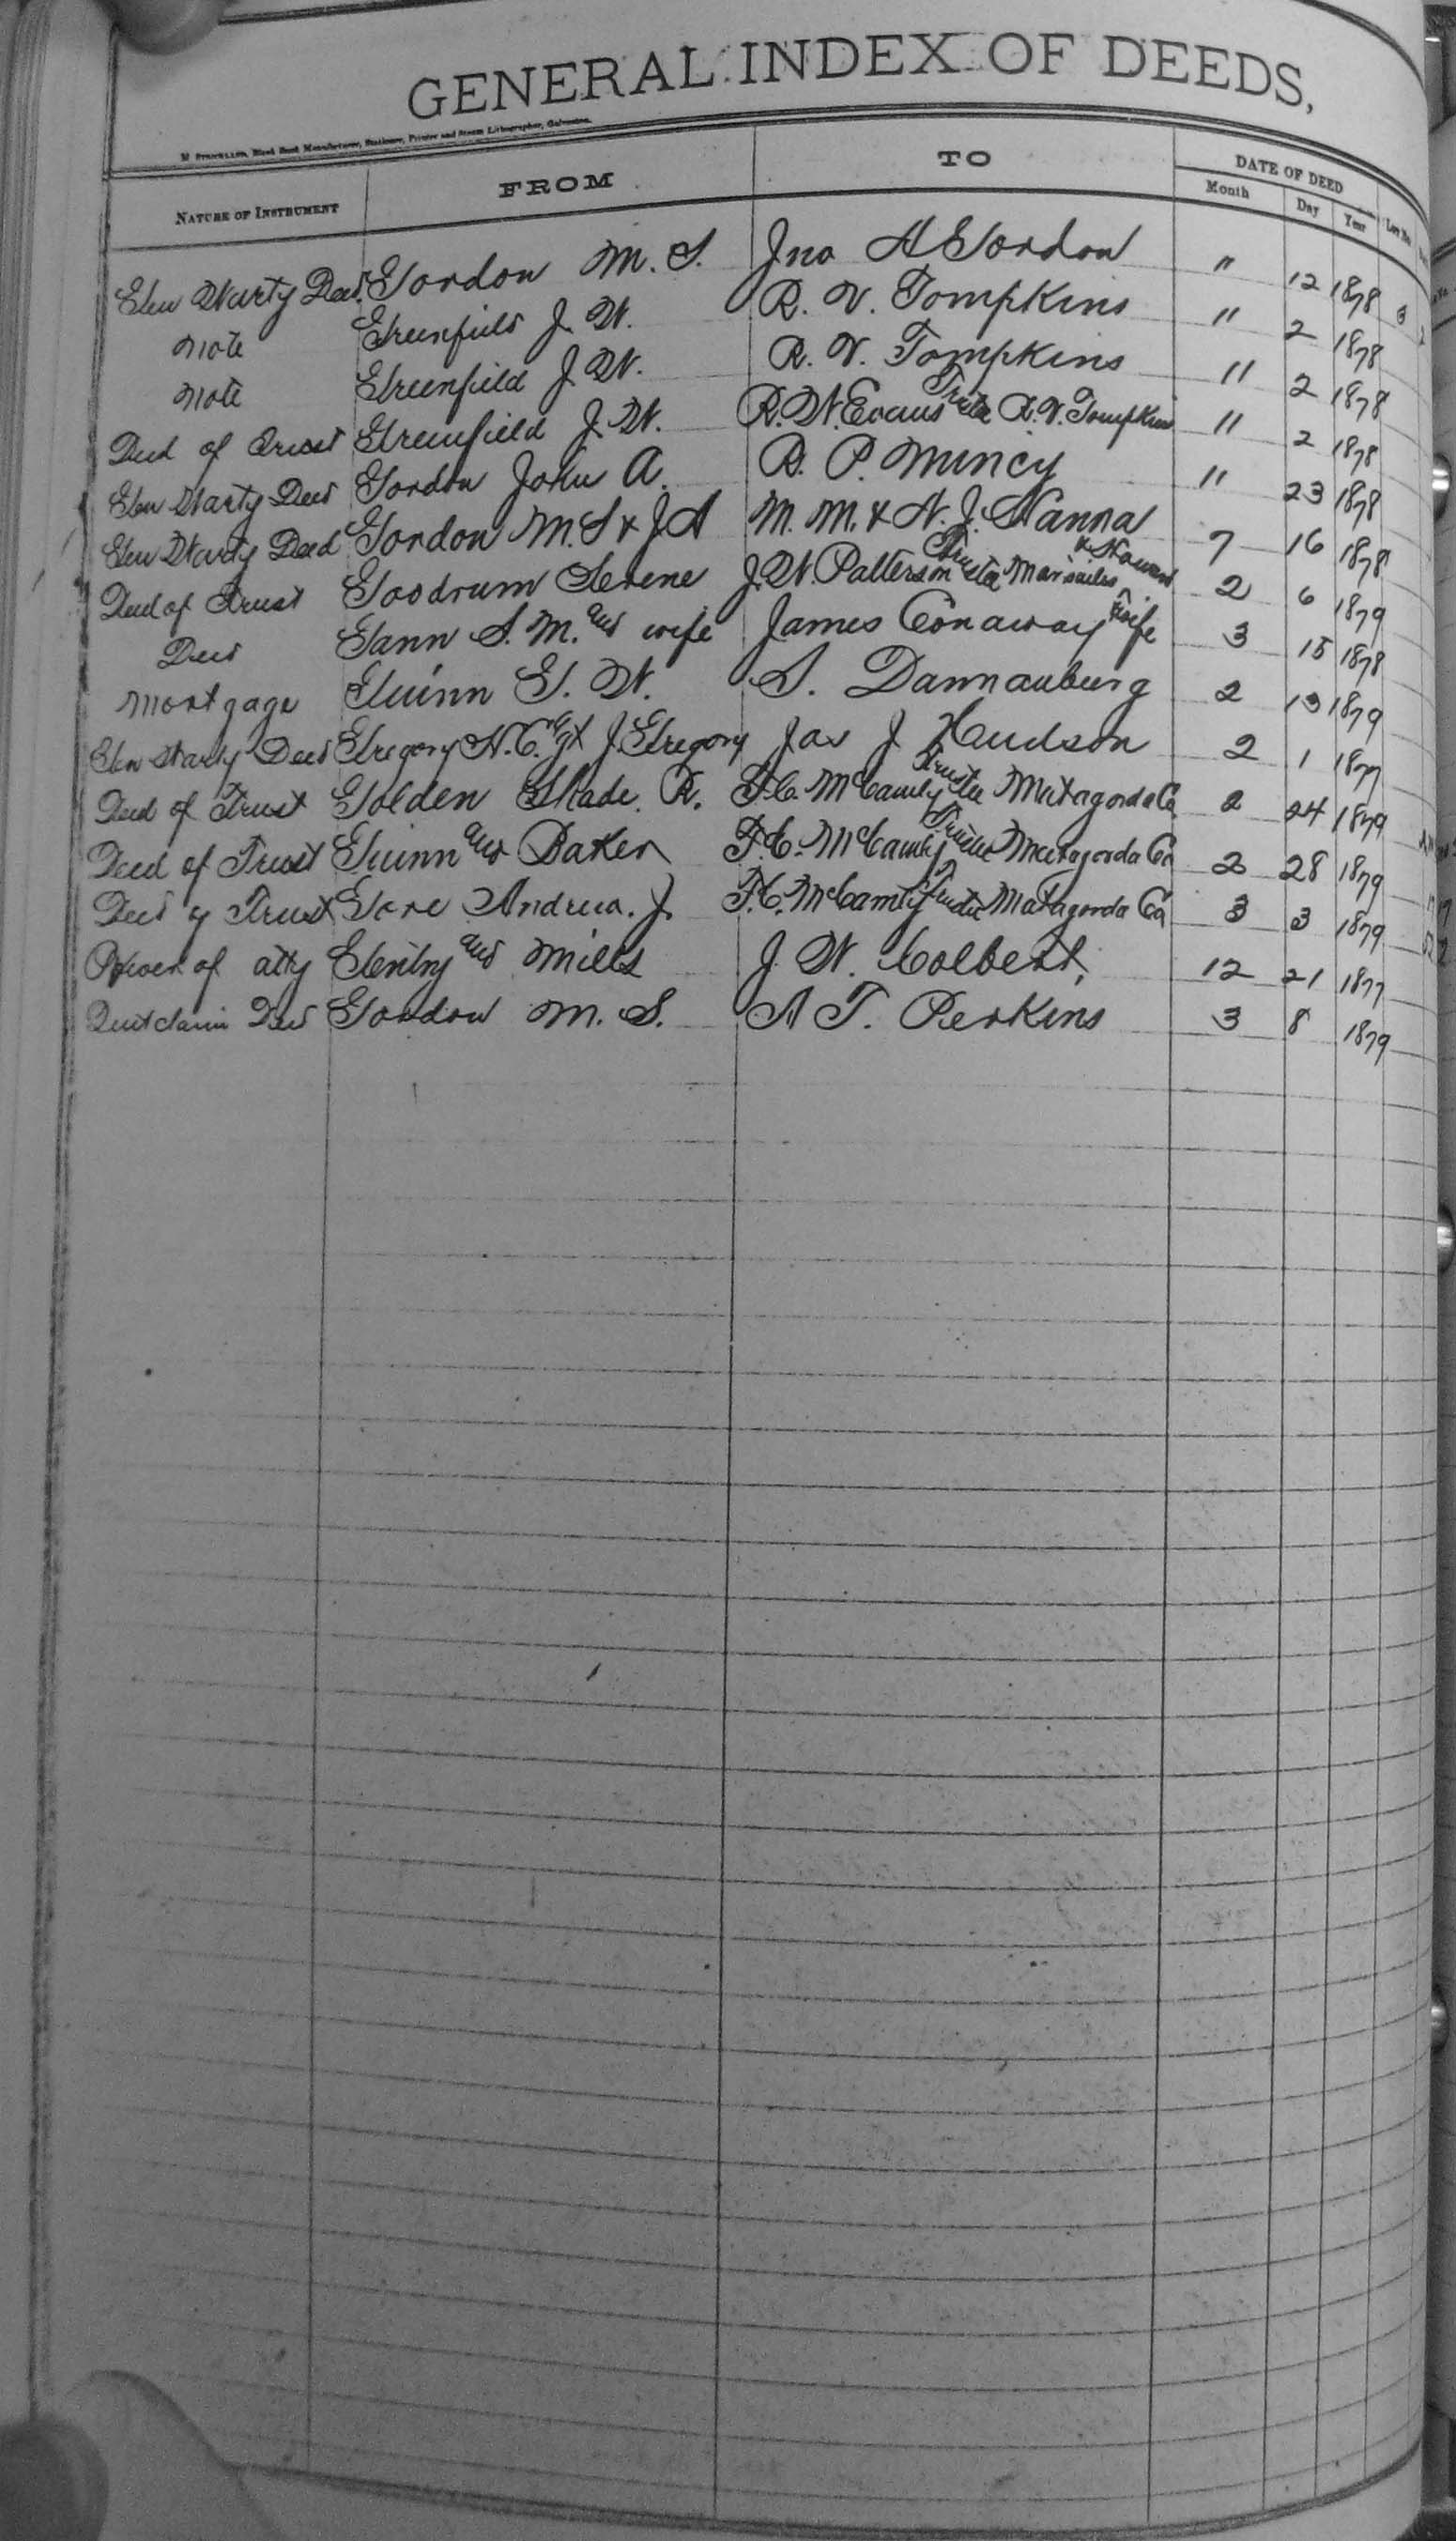 GENERAL INDEX OF DEEDS,
Blank Book Manufacturer, Stationer, Printer and Steam Lithographer, Galveston.
NATURE OF INSTRUMENT FROM TO DATE OF DEED
Month Day Year
Gen Warty Deed Gordon M. S. Jno A Gordon " 12 1878
Note Greenfield J. W. R. V. Tompkins " 2 1878
Note Greenfield J. W. R. V. Tompkins " 2 1878
Deed of Trust Greenfield J. W. R. W. Evans Trustee R. V. Tompkins " 2 1878
Gen Warty Deed Gordon John A. R. P. Mincy " 23 1878
Gen Warty Deed Gordon M. S & J A M. M. & N. J. Hanna 7 16 1878
Deed of Trust Goodrum Serene J. W. Patterson Trustee Marsailes & Howard 2 6 1879
Deed Gann S. M. and wife James Conaway & wife 3 15 1878
Mortgage Guinn G. W. S. Dannauburg 2 13 1879
Gen Warty Deed Gregory N. C. J. Gregory Jas J Hudson 2 1 1877
Deed of Trust Golden Shade R. F. C. McCamly Trustee Matagorda Co 2 24 1879
Deed of Trust Guinn and Baker F. C. McCamly Trustee Matagorda Co 2 28 1879
Deed of Trust Gore Andrew J. F. C. McCamly Trustee Matagorda Co 3 3 1879
Power of atty Gentry and Mills J. W. Colbert 12 21 1877
Quitclaim Deed Gordon M. S. A T. Perkins 3 8 1879